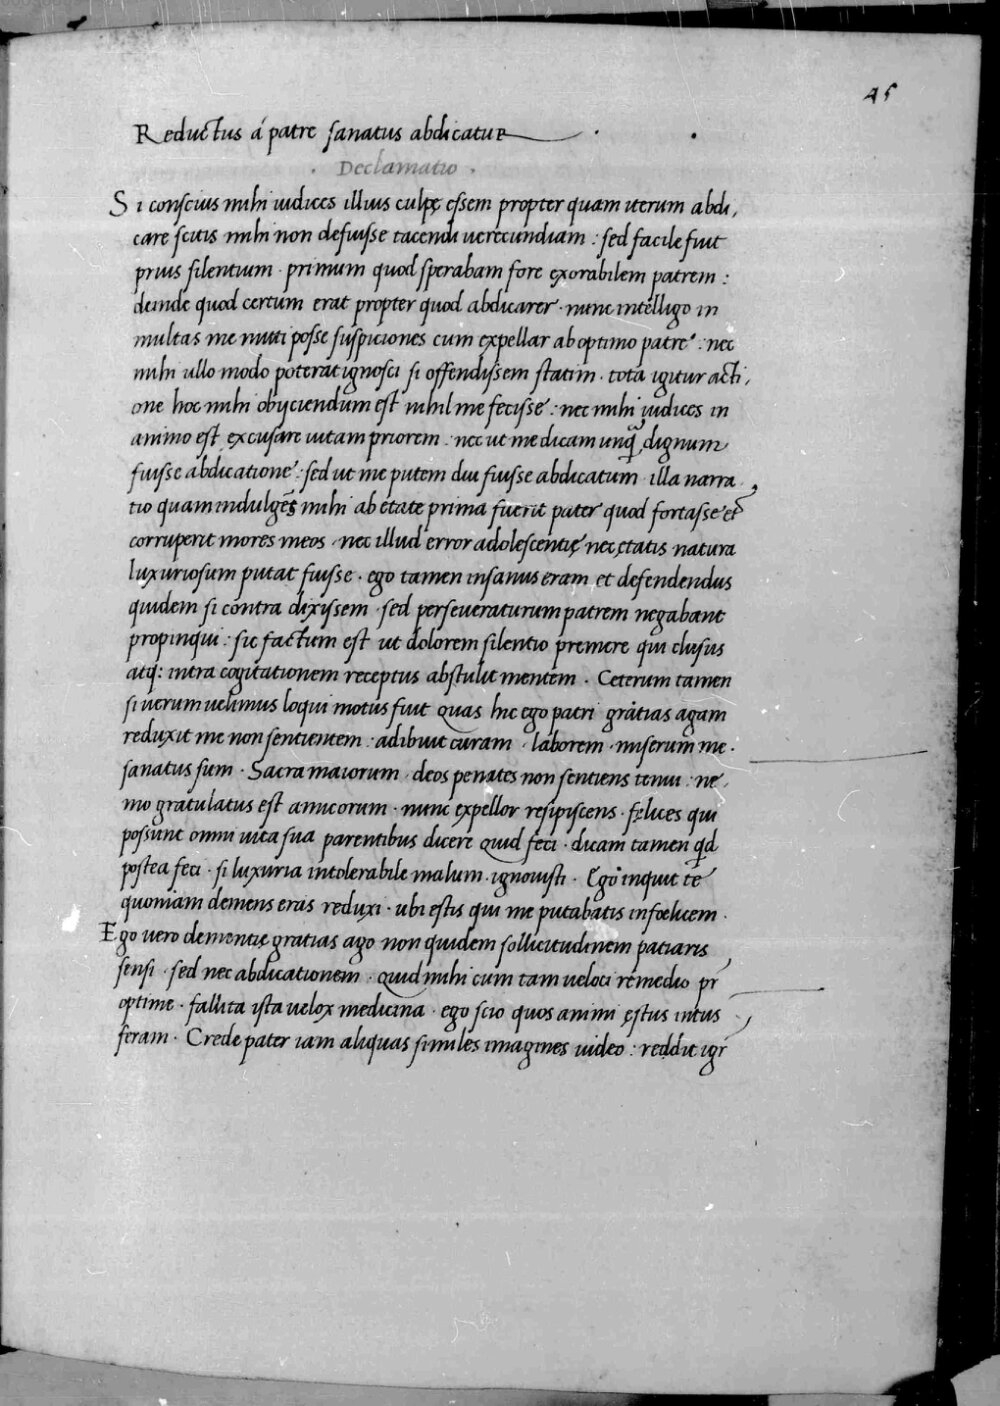 45
Reductus á patre sanatus abdicatur
· Declamatio ·
Si conscius mihi iudices illius culpę essem propter quam iterum abdi,
care scitis mihi non defuisse tacendi uerecundiam : sed facile fuit
prius silentium · primum quod sperabam fore exorabilem patrem :
deinde quod certum erat propter quod abdicarer · nunc intelligo in
multas me mitti posse suspiciones cum expellar ab optimo patre : nec
mihi ullo modo poterat ignosci si offendissem statim · tota igitur acti,
one hoc mihi obijciendum est nihil me fecisse : nec mihi iudices in
animo est excusare uitam priorem : nec ut me dicam unq̃ dignum
fuisse abdicatione : sed ut me putem diu fuisse abdicatum · illa narra
tio quam indulgẽs mihi ab etate prima fuerit pater quod fortasse et
corruperit mores meos · nec illud error adolescentię nec ętatis natura
luxuriosum putat fuisse · ego tamen insanus eram et defendendus
quidem si contra dixissem · sed perseueraturum patrem negabant
propinqui : sic factum est ut dolorem silentio premere qui clusus
atq: intra cogitationem receptus abstulit mentem · Ceterum tamen
si uerum uelimus loqui motus fuit Quas hic ego patri gratias agam
reduxit me non sentientem : adibuit curam · laborem · miserum me ·
sanatus sum · Sacra maiorum · deos penates non sentiens tenui : ne,
mo gratulatus est amicorum · nunc expellor resipiscens · fęlices qui
possunt omni uita sua parentibus dicere Quid feci · dicam tamen qd
postea feci · si luxuria intolerabile malum · ignouisti · Ego inquit te
quoniam demens eras reduxi · ubi estis qui me putabatis infoelicem ·
Ego uero dementię gratias ago non quidem sollicitudinem patiaris
sensi · sed nec abdicationem · Quid mihi cum tam ueloci remedio pr̃
optime · fallit a ista uelox medicina · ego scio quos animi ęstus intus
feram · Crede pater iam aliquas similes imagines uideo : reddit igr̃